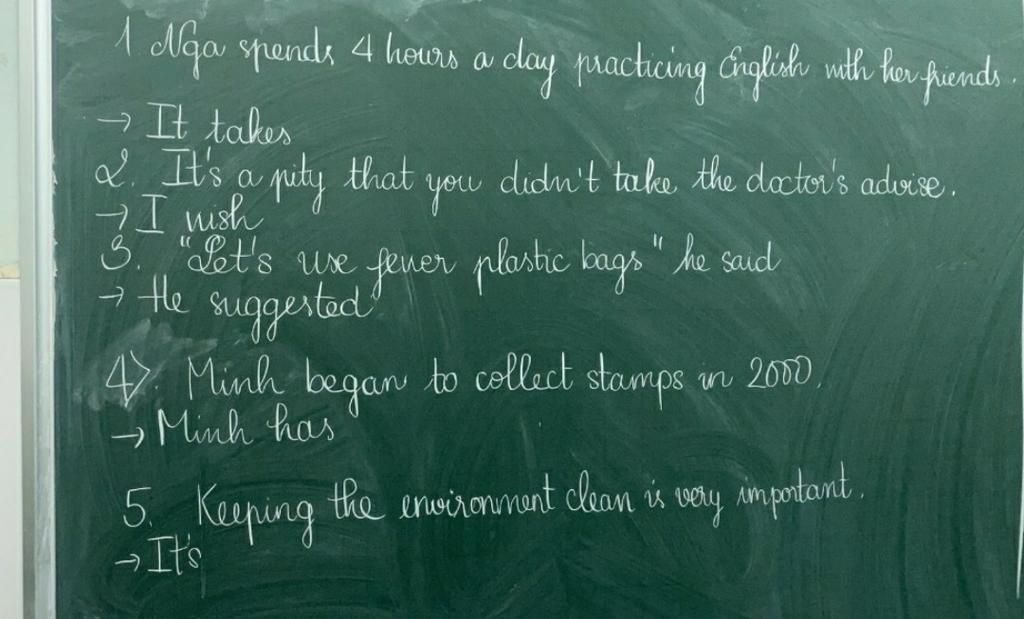 1 Nga spends 4 hours a day practicing English with her friends.
→ It takes
2. It's a pity that you didn't take the doctor's advise.
→ I wish
3. "Let's use fewer plastic bags" he said
→ He suggested
4). Minh began to collect stamps in 2000.
→ Minh has
5. Keeping the environment clean is very important.
→ It's